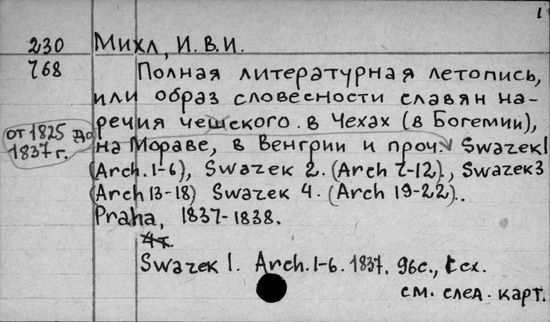 1
230 Михл, И.В.И.
768 Полная литературная летопись,
или образ словесности славян на-
речия чешского в Чехах (в Богемии),
от 1825 до
1837 г.
на Мораве, в Венгрии и проч. Swazek 1
(Arch. 1-6), Swazek 2. (Arch 7-12), Swazek 3
(Arch 13-18) Swazek 4. (Arch 19-22).
Praha, 1837-1838.
4 т.
Swazek 1. Arch. 1-6. 1837. 96с., 1 сх.
см. след. карт.